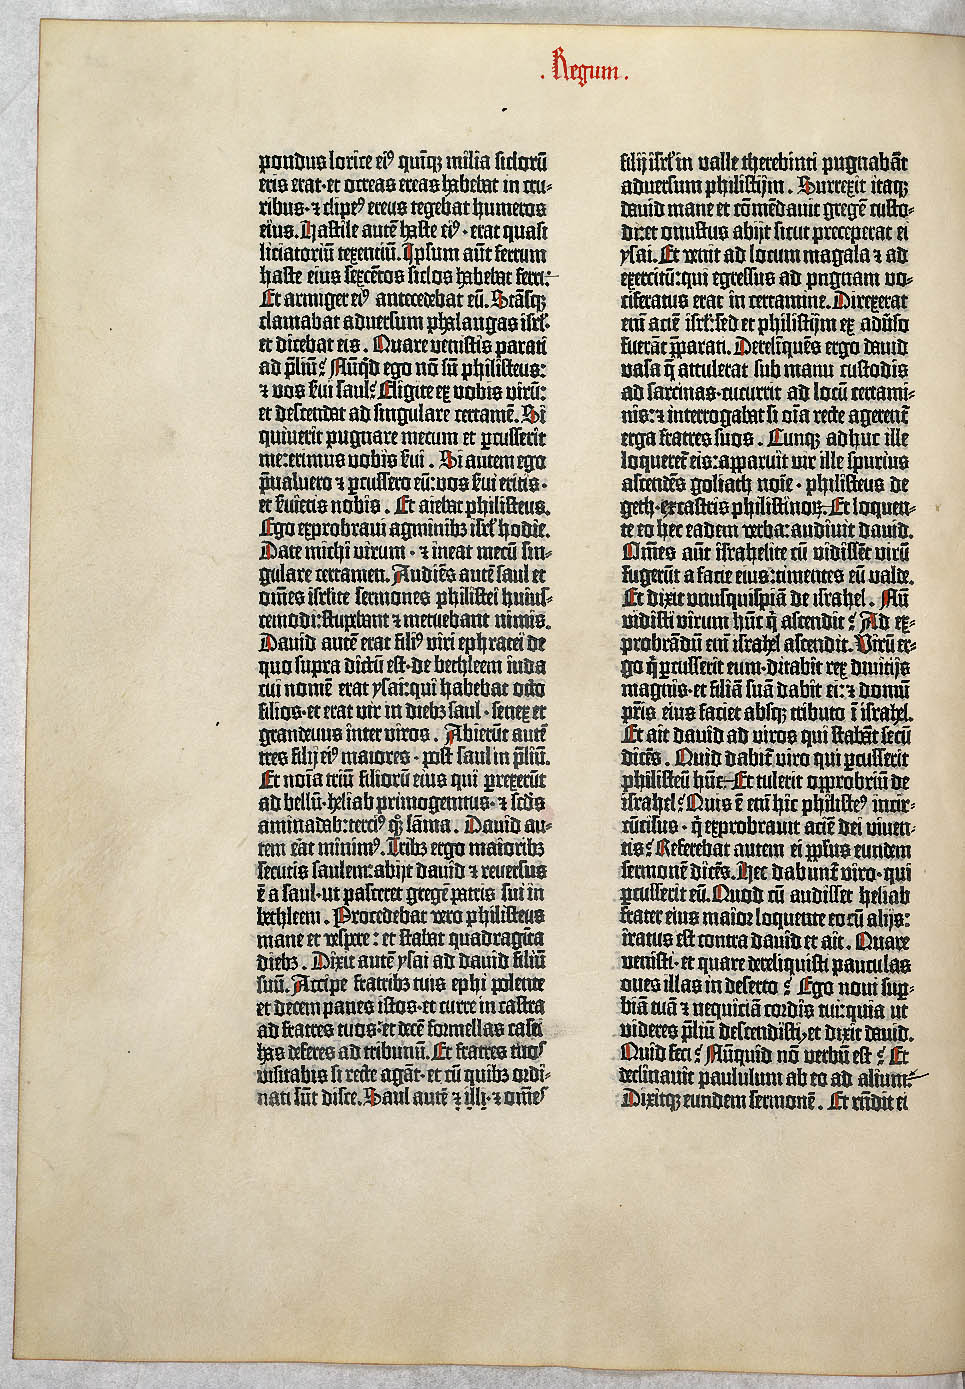 . Regum .
pondus lorice eiꝰ quīqꝫ milia siclorū
eris erat· et ocreas ereas habebat in cru⸗
ribus· ⁊ clipeꝰ ereus tegebat humeros
eius. Hastile autē haste eiꝰ· erat quasi
liciatoriū texentiū. Ipsum aūt ferrum
haste eius sexcētos siclos habebat ferri:
Et armiger eiꝰ antecedebat eū. Stāsqꝫ
clamabat adversum phalangas isrl̄·
et dicebat eis. Quare venistis parati
ad p̄liū? Nūq̄d ego nō sū philisteus:
⁊ vos s̄ui saul? Eligite ex vobis virū:
et descendat ad singulare certamē. Si
quiverit pugnare mecum et ꝑcusserit
me: erimus vobis s̄ui. Si autem ego
p̄valuero ⁊ ꝑcussero eū: vos s̄ui eritis·
et s̄uietis nobis. Et aiebat philisteus.
Ego exprobravi agminibꝫ isrl̄ hodie.
Date michi virum· ⁊ ineat mecū sin⸗
gulare certamen. Audiēs autē saul et
om̄es isrlite sermones philistei huius⸗
cemodi: stupebant ⁊ metuebant nimis.
David autē erat filiꝰ viri ephratei de
quo supra dictū est· de bethleem iuda
cui nomē erat ysai: qui habebat octo
filios· et erat vir in diebꝫ saul· senex et
grandevus inter viros. Abierūt autē
tres filij eiꝰ maiores· post saul in p̄liū.
Et noīa triū filiorū eius qui ꝑrexerūt
ad bellū· heliab primogenitus· ⁊ scd̄s
aminadab: terciꝰ qꝫ sāma. David au⸗
tem erāt minimꝰ. Tribꝫ ergo maioribꝫ
secutis saulem: abijt david ⁊ reversus
ē a saul· ut pasceret gregē patris sui in
bethleem. Procedebat vero philisteus
mane et vespere: et stabat quadraginta
diebꝫ. Dixit autē ysai ad david filiū
suū. Accipe fratribꝫ tuis ephi polente
et decem panes istos· et curre in castra
ad fratres tuos: et decē formellas casei
has deferes ad tribunū. Et fratres tuos
visitabis si recte agāt· et cū quibꝫ ordi⸗
nati sūt disce. Saul autē ⁊ illi· ⁊ om̄es
filij isrl̄ in valle therebinti pugnabāt
adversum philistijm. Surrexit itaqꝫ
david mane et cōmēdavit gregē custo⸗
di: et onustus abijt sicut preceperat ei
ysai. Et venit ad locum magala ⁊ ad
exercitū: qui egressus ad pugnam vo⸗
ciferatus erat in certamine. Direxerat
em̄ aciē isrl̄: sed et philistijm ex adūso
fuerāt p̄parati. Derelinquēs ergo david
vasa q̄ attulerat sub manu custodis
ad sarcinas· cucurrit ad locū certami⸗
nis: ⁊ interrogabat si oīa recte agerent̄
erga fratres suos. Cunqꝫ adhuc ille
loqueret̄ eis: apparuit vir ille spurius
ascendēs goliath noīe· philisteus de
geth· ex castris philistinoꝝ. Et loquen⸗
te eo hec eadem verba: audivit david.
Om̄es aūt israhelite cū vidissēt virū
fugerūt a facie eius: timentes eū valde.
Et dixit unusquispiā de israhel. Nū
vidisti virum hūc q̄ ascendit? Ad ex⸗
probrādū em̄ israhel ascendit. Virū er⸗
go q̄ ꝑcusserit eum· ditabit rex divitijs
magnis· et filiā suā dabit ei: ⁊ domū
pr̄is eius faciet absqꝫ tributo ī israhel.
Et ait david ad viros qui stabāt secū
dicēs. Quid dabit̄ viro qui ꝑcusserit
philisteū hūc· Et tulerit opprobriū de
israhel? Quis ē em̄ hic philisteꝰ incir⸗
cūcisus· q̄ exprobravit aciē dei viven⸗
tis? Referebat autem ei ꝓpsus eundem
sermonē dicēs. Hec dabunt̄ viro· qui
ꝑcusserit eū. Quod cū audisset heliab
frater eius maior loquente eo cū alijs:
iratus est contra david et ait. Quare
venisti· et quare dereliquisti pauculas
oves illas in deserto? Ego novi suꝑ⸗
biā tuā ⁊ nequiciā cordis tui: quia ut
videres p̄liū descendisti, et dixit david.
Quid feci? Nūquid nō verbū est? Et
declinavit paululum ab eo ad alium:
Dixitqꝫ eundem sermonē. Et rn̄dit ei